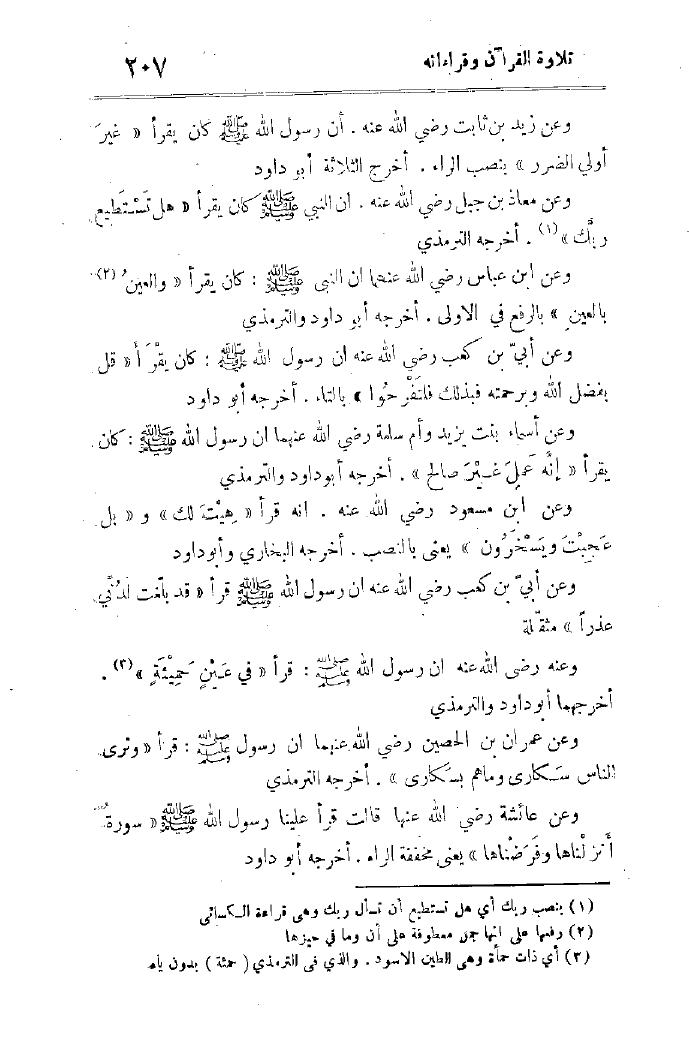 تلاوة القرآن وقراءاته ٢٠٧
وعن زيد بن ثابت رضي الله عنه . أن رسول الله ﷺ كان يقرأ « غيرَ
أولي الضرر » بنصب الراء . أخرج الثلاثة أبو داود
وعن معاذ بن جبل رضي الله عنه . ان النبي ﷺ كان يقرأ « هل تَسْتَطيع
ربَّك »(١) . أخرجه الترمذي
وعن ابن عباس رضي الله عنهما ان النبي ﷺ : كان يقرأ « والعينُ (٢)
بالعينِ » بالرفع في الاولى . أخرجه أبو داود والترمذي
وعن أبيّ بن كعب رضي الله عنه ان رسول الله ﷺ : كان يَقْرَأ « قل
بفضل الله وبرحمته فبذلك فلتَفْرحُوا » بالتاء . أخرجه أبو داود
وعن أسماء بنت يزيد وأم سلمة رضي الله عنهما ان رسول الله ﷺ : كان
يقرأ « إنَّه عَمِلَ غَيْرَ صالح » . أخرجه أبوداود والترمذي
وعن ابن مسعود رضي الله عنه . انه قرأ « هِيْتَ لك » و « بل
عَجِبْتَ ويَسْخَرُون » يعنى بالنصب . أخرجه البخاري وأبوداود
وعن أبيّ بن كعب رضي الله عنه ان رسول الله ﷺ قرأ « قد بلّغت لَدُنّي
عذراً » مثقّلة
وعنه رضي الله عنه ان رسول الله ﷺ : قرأ « في عَيْنٍ حَمِيْئَةٍ »(٣) .
أخرجهما أبوداود والترمذي
وعن عمران بن الحصين رضي الله عنهما ان رسول ﷺ : قرأ « وترى
الناس سَكارى وماهم بسَكارى » . أخرجه الترمذي
وعن عائشة رضي الله عنها قالت قرأ علينا رسول الله ﷺ « سورةٌ
أنزلْناها وفَرَضْناها » يعنى مخففة الراء . أخرجه أبو داود
(١) بنصب ربك أي هل تستطيع أن تسأل ربك وهى قراءة الكسائى
(٢) رفعها على انها جمل معطوفة على أن وما في حيزها
(٣) أي ذات حمأة وهى الطين الاسود . والذي فى الترمذي ( حمئة ) بدون ياء